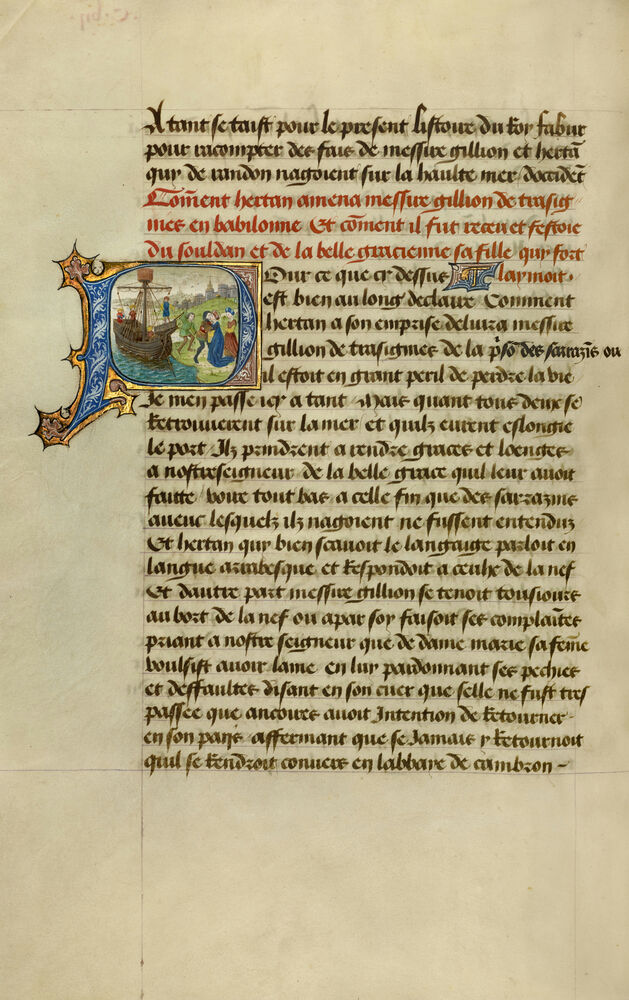 A tant se taist pour le present listoire du Roy fabur
pour racompter des fais de messire gillion et hertā
quy de randon nagoient sur la haulte mer doccidēt
Com̄ent hertan amena messire gillion de trasig
mes en babilonne Et cōment il fut receu et festoie
du souldan et de la belle gracienne sa fille quy fort
Pour ce que cy dessus laymoit.
est bien au long declaire Comment
hertan a son emprise deliura messire
gillion de trasignies de la p̲so des sarrazīs ou
il estoit en grant peril de perdre la vie
Je men passe icy a tant Mais quant tous deux se
Retrouuerent sur la mer et quilz eurent eslongie
le port Ilz prindrent a rendre graces et loenges
a nostreseigneur de la belle grace quil leur auoit
faitte voire tout bas a celle fin que des sarrazins
auenc lesquelz ilz nagoient ne fussent entenduz
Et hertan quy bien scauoit le langaige parloit en
langue arrabesque et Respondoit a ceulx de la nef
Et dautre part messire gillion se tenoit tousiours
au bort de la nef ou apar soy faisoit ses complaītes
priant a nostre seigneur que de dame marie sa fēme
voulsist auoir lame en luy pardonnant ses pechies
et deffaultes disant en son cuer que selle ne fust tres
passee que ancoires auoit Intention de Retourner
en son pays affermant que se Jamais y Retournoit
quil se Rendroit conuers en labbaye de cambron